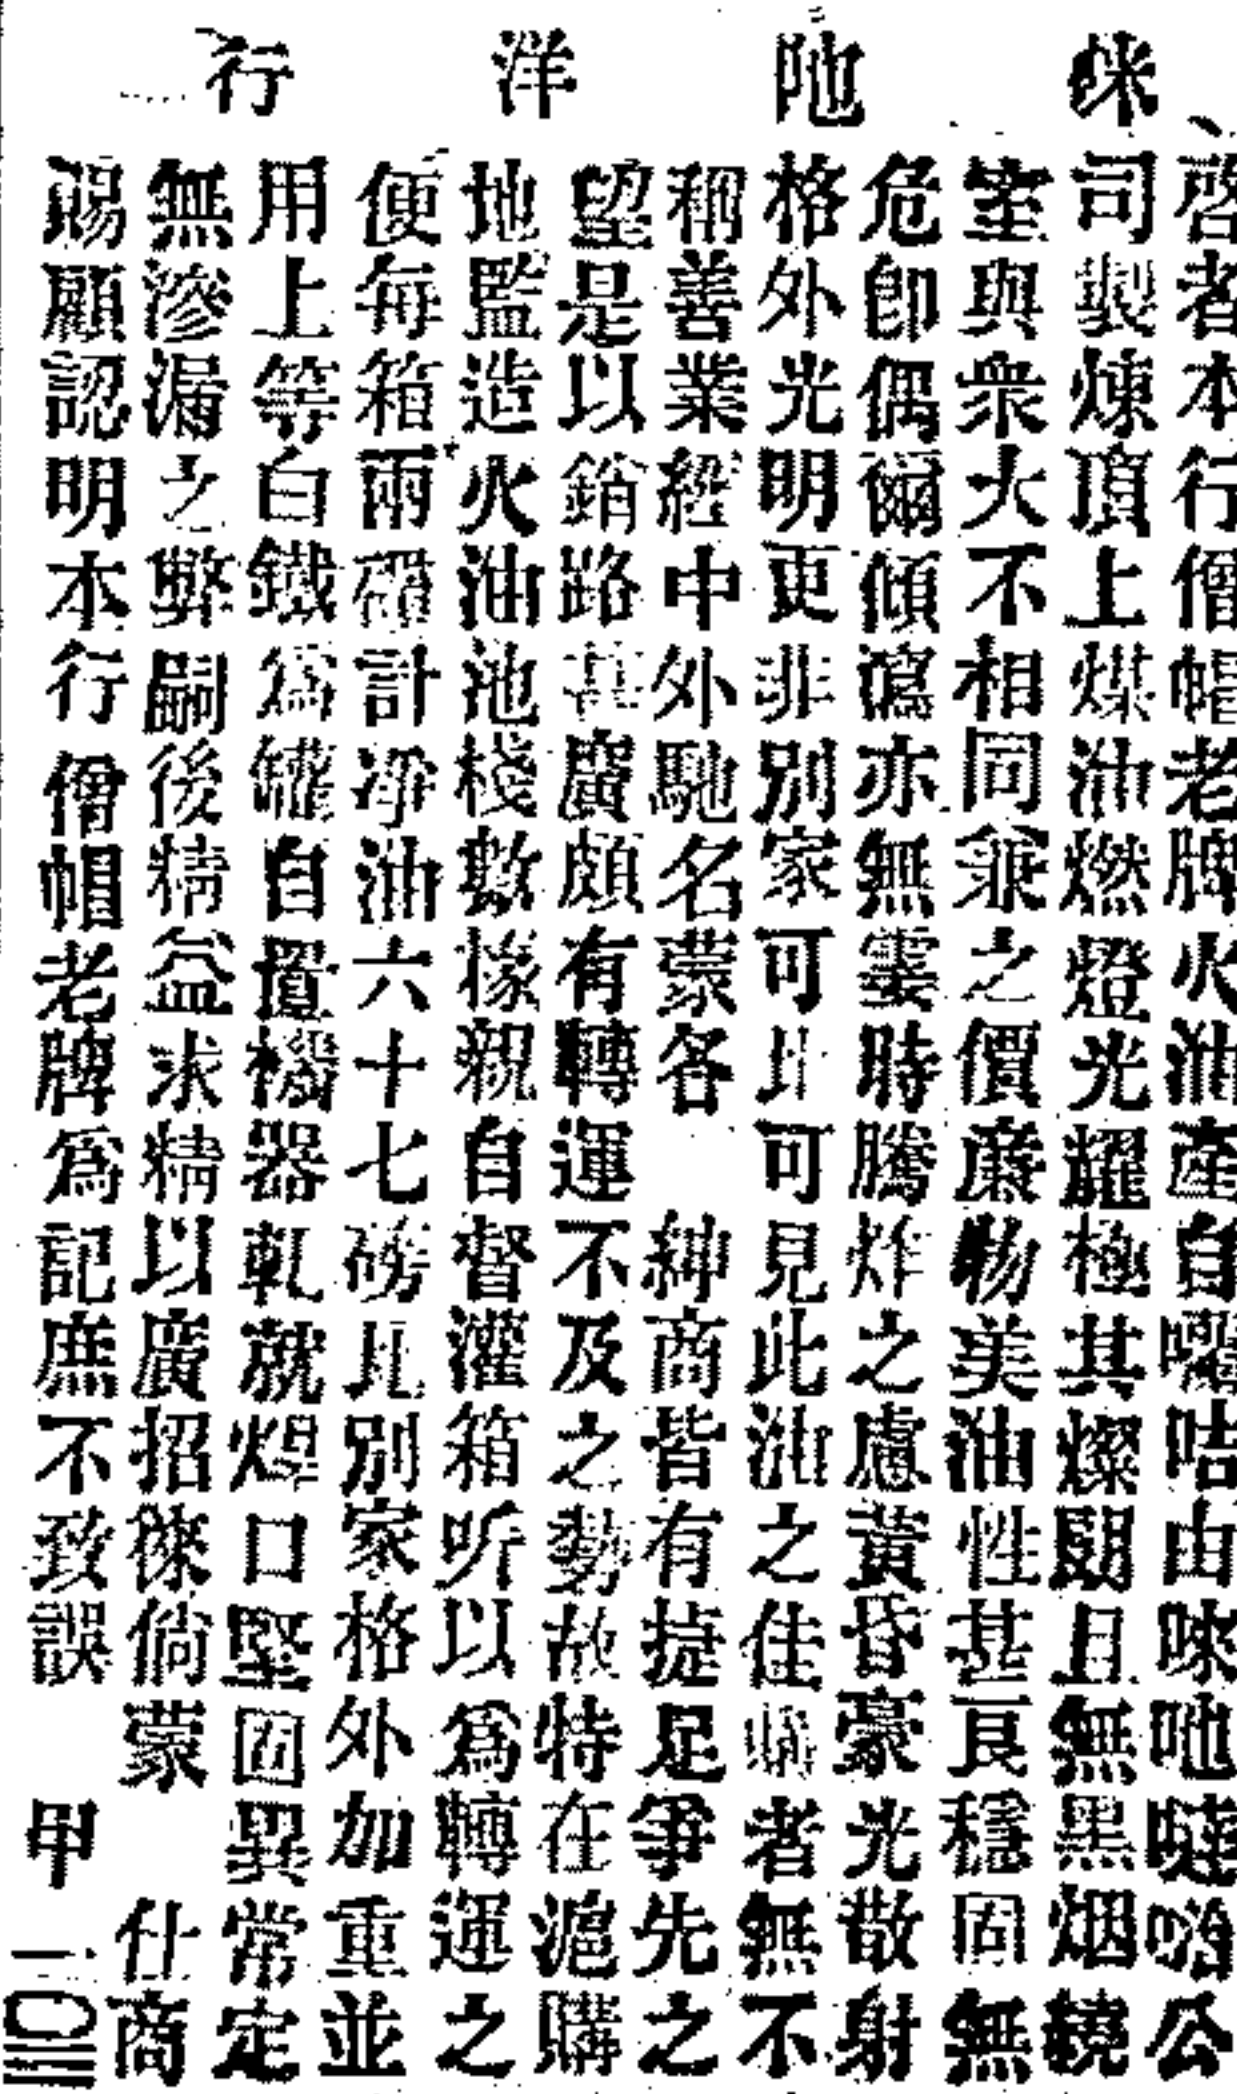 咪吔洋行
啓者本行僧帽老牌火油產自囒咭由咪吔噠㗇公
司製煉頂上煤油燃燈光耀極其燦朗且無黑烟繞
室與衆大不相同兼之價廉物美油性甚良穩固無
危卽偶爾傾瀉亦無霎時騰炸之慮黃昏豪光散射
格外光明更非別家可比可見此油之佳購者無不
稱善業經中外馳名蒙各 紳商皆有捷足爭先之
望是以銷路甚廣頗有轉運不及之勢故特在滬購
地監造火油池棧數椽親自督灌箱听以爲轉運之
便每箱兩罐計淨油六十七磅比別家格外加重並
用上等白鐵爲罐自置機器軋就焊口堅固異常定
無滲漏之弊嗣後精益求精以廣招徠倘蒙 仕商
賜顧認明本行僧帽老牌爲記庶不致誤 甲 一〇三